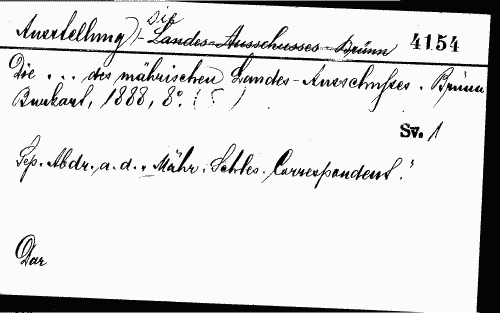 Die
Ausstellung) - Landes-Ausschusses Brünn 4154
Die ... des mährischen Landes-Ausschusses. Brünn
Burkart, 1888, 8°. ( )
Sv. 1
Sep. Abdr. a. d. „Mähr. Schles. Correspondent."
Dar